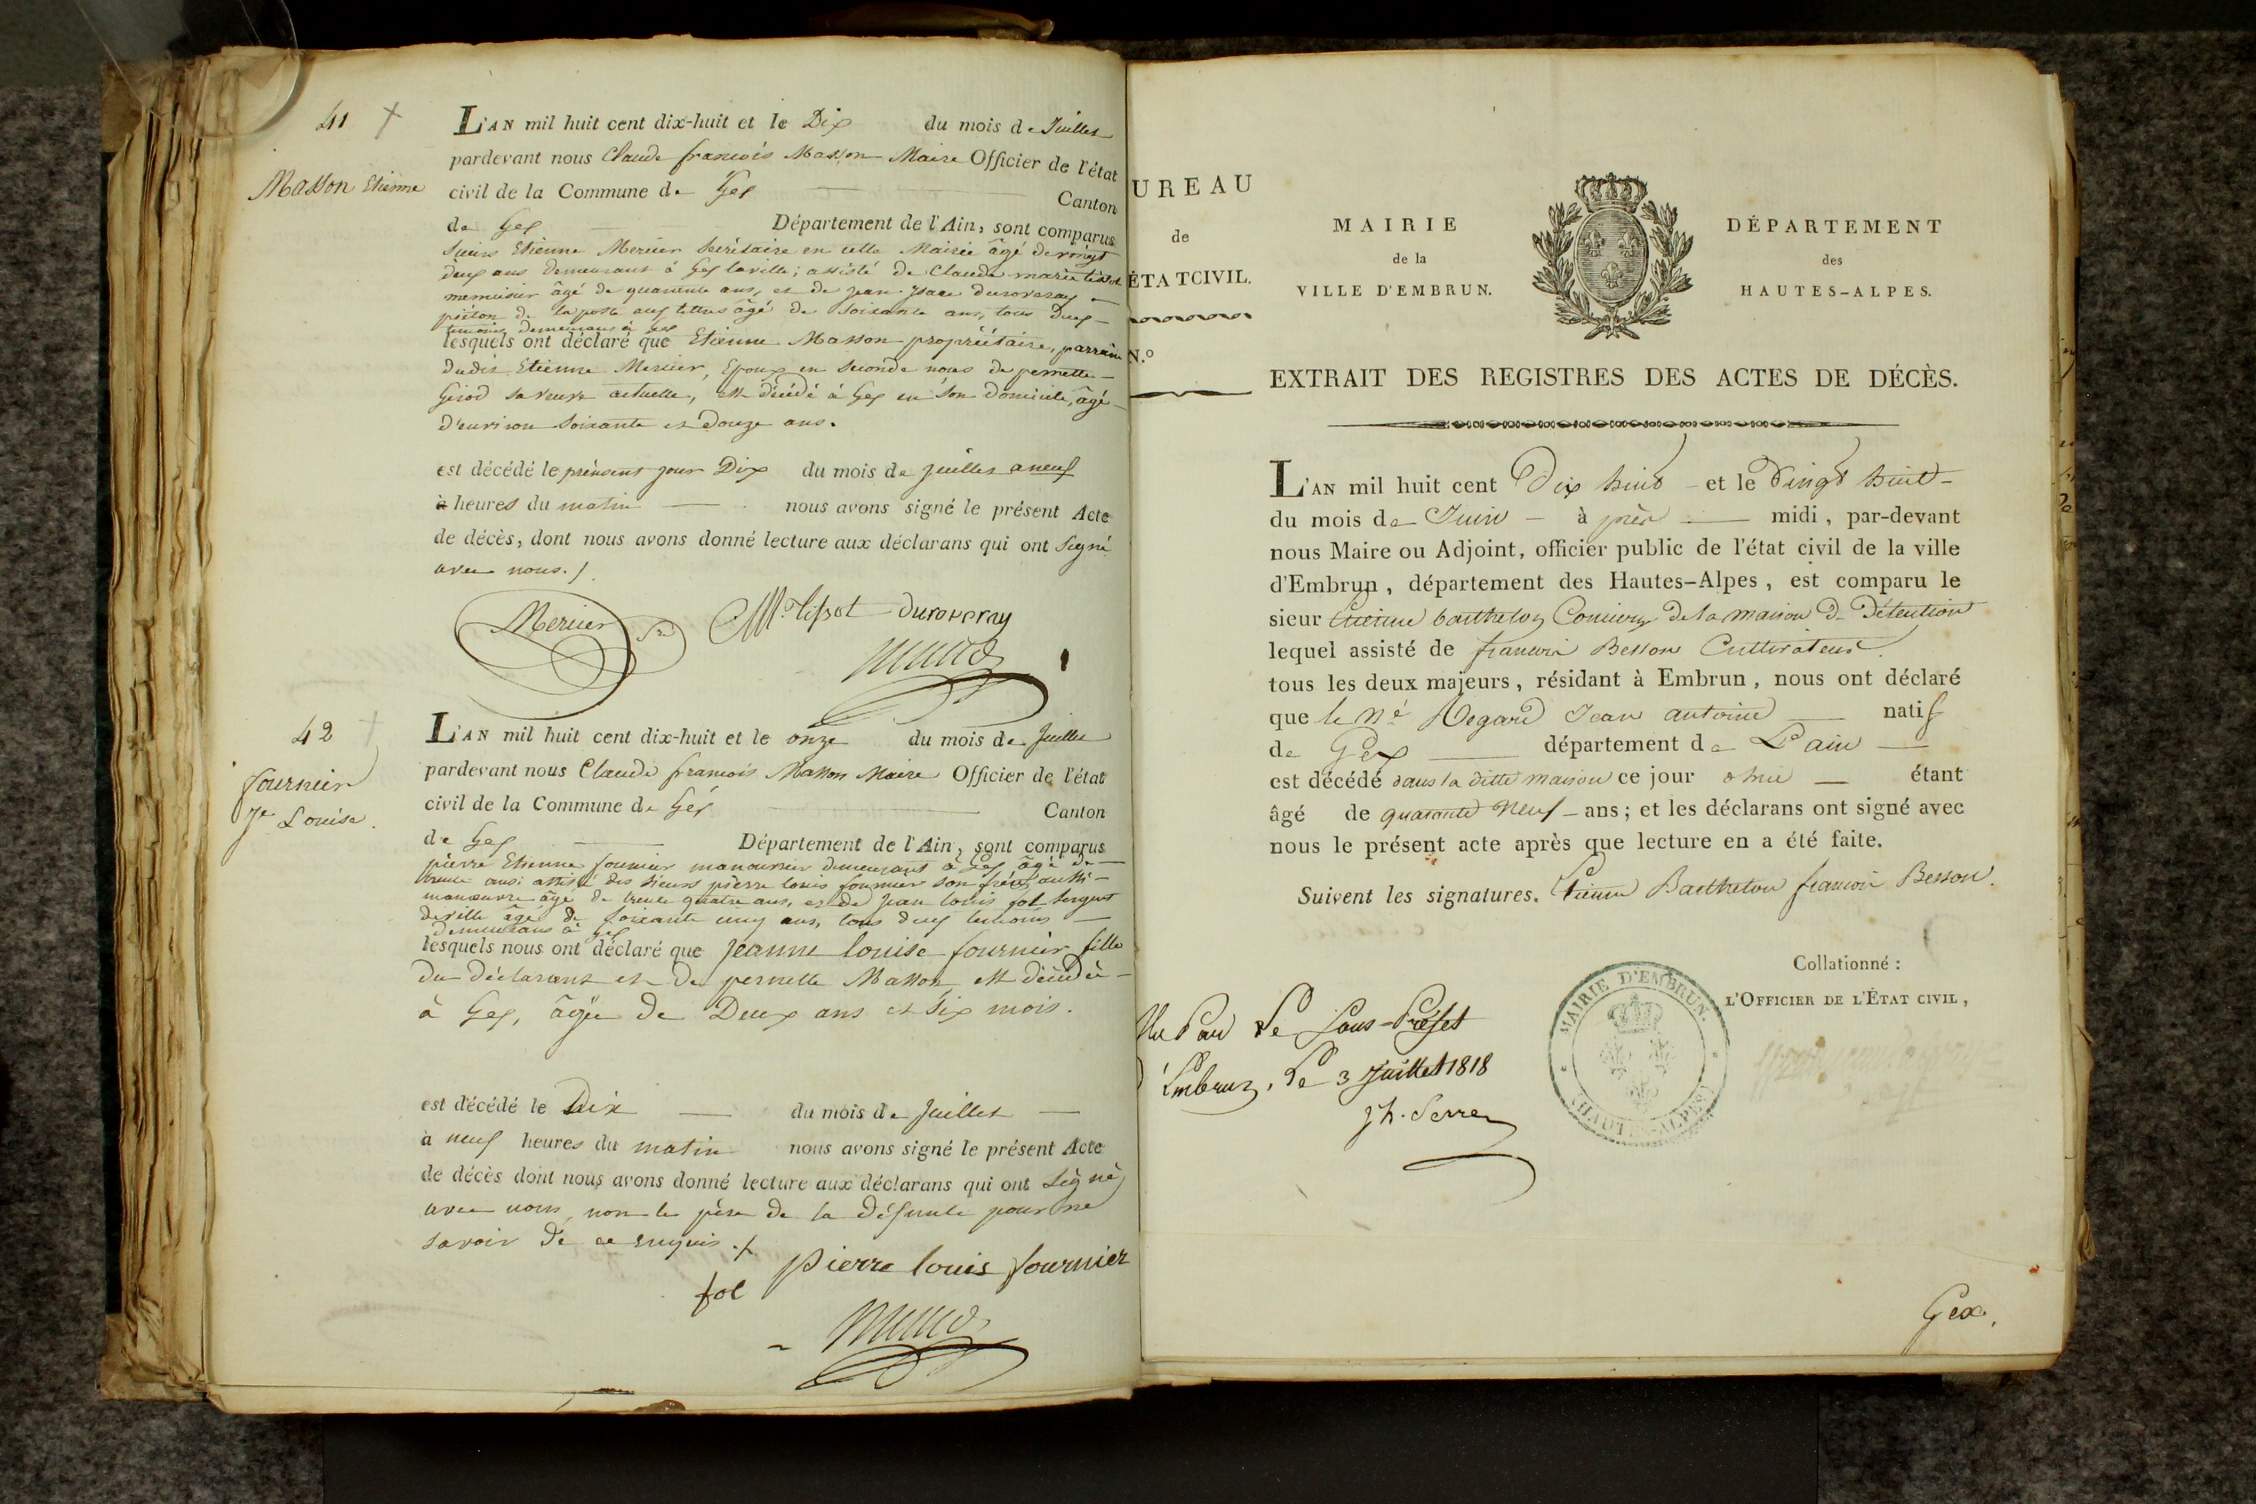 41 +
Masson Etienne
L'AN mil huit cent dix-huit et le Dix du mois de Juillet
pardevant nous Claude françois Masson Maire Officier de l'état
civil de la Commune de Gex Canton
de Gex Département de l'Ain, sont comparus
Sieurs Etienne Mercier Secrétaire en cette Mairie âgé de vingt
deux ans demeurant à Gex la ville; assisté de Claude marie tissot
menuisier âgé de quarante ans, et de jean isaac duroveray
piéton de la poste aux lettres âgé de soixante ans, tous deux
temoins demeurans à Gex
lesquels ont déclaré que Etienne Masson propriétaire, parrain
dudit Etienne Mercier, Epoux en seconde noces de pernette
Girod sa veuve actuelle, est décédé à Gex en son domicile, âgé
d'environ soixante et douze ans.
est décédé le présent jour Dix du mois de juillet a neuf
à heures du matin nous avons signé le présent Acte
de décès, dont nous avons donné lecture aux déclarans qui ont signé
avec nous./.
Mercier CM Tissot Duroveray
42 +
fournier
Je Louise.
L'AN mil huit cent dix-huit et le onze du mois de Juillet
pardevant nous Claude françois Masson Maire Officier de l'état
civil de la Commune de Gex Canton
de Gex Département de l'Ain, sont comparus
pierre Etienne fournier manouvrier demeurant à Gex âgé de
trente ans; assisté des sieurs pierre louis fournier son frère aussi
manœuvre âgé de trente quatre ans, et de jean louis fol sergent
de ville âgé de soixante cinq ans, tous deux temoins
demeurans à Gex
lesquels nous ont déclaré que jeanne louise fournier fille
du déclarant et de pernette Masson est décédée
à Gex, âgée de Deux ans et six mois.
est décédé le Dix du mois de juillet
à neuf heures du matin nous avons signé le présent Acte
de décès dont nous avons donné lecture aux déclarans qui ont signé
avec nous, non le père de la défunte pour ne
savoir de ce enquis ./.
fol pierre louis fournier
UREAU
de
ÉTATCIVIL.
N.º
MAIRIE
de la
VILLE D'EMBRUN.
DÉPARTEMENT
des
HAUTES-ALPES.
EXTRAIT DES REGISTRES DES ACTES DE DÉCÈS.
L'AN mil huit cent Dix huit et le vingt huit
du mois de Juin à près midi, par-devant
nous Maire ou Adjoint, officier public de l'état civil de la ville
d'Embrun, département des Hautes-Alpes, est comparu le
sieur Etienne barthelon Concierge de la maison de Détention
lequel assisté de françois Besson Cultivateur
tous les deux majeurs, résidant à Embrun, nous ont déclaré
que le né Regard Jean antoine natif
de Gex département de L'ain
est décédé dans la ditte maison ce jour étant
âgé de quarante neuf ans; et les déclarans ont signé avec
nous le présent acte après que lecture en a été faite.
Suivent les signatures. Etienne Barthelon françois Besson.
Collationné :
L'OFFICIER DE L'ÉTAT CIVIL,
MAIRIE D'EMBRUN.
(HAUTES-ALPES)
Vu Par Le Sous-Préfet
d'Embrun, le 3 Juillet 1818
Jh. Serres
Gex.